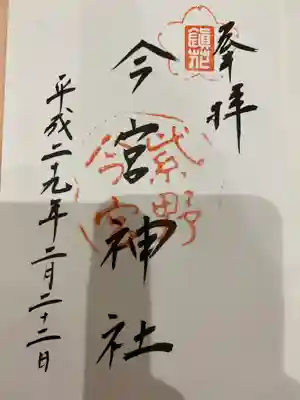 奉拝
鎮花
今宮神社
紫野
今宮
平成二十九年二月二十二日